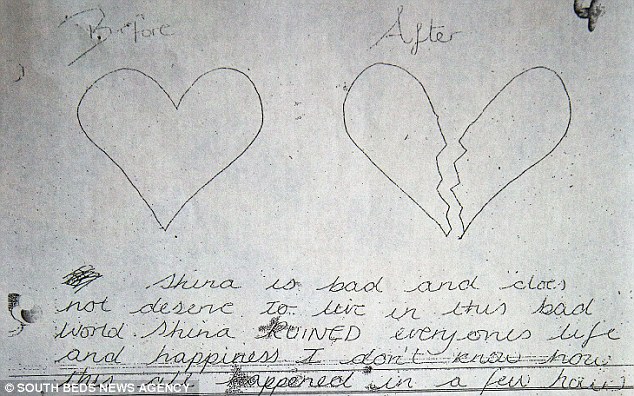 Before After
Shina is bad and does
not deserve to live in this bad
world. Shina RUINED everyones life
and happiness I don't know how
this all happened in a few hours
© SOUTH BEDS NEWS AGENCY